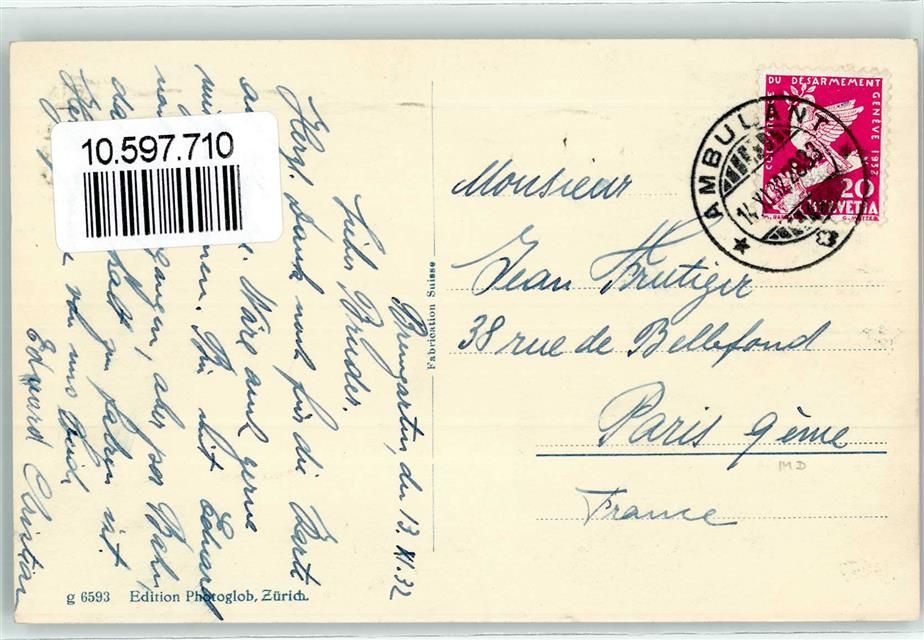 10.597.710
Bremgarten, den 13. XI. 32
Lieber Bruder.
Herzl. Dank noch für die Karte
Wäre auch gerne
Bin mit Eduard
gangen, aber per Bahn,
kalt zu fahren mit
von uns beide
Edward Christian
g 6593 Edition Photoglob, Zürich.
Fabrication Suisse
DU DÉSARMEMENT GENÈVE 1932
20
HELVETIA
AMBULANT
8
Monsieur
Jean Frutiger
38 rue de Bellefond
Paris 9ème
MD
France